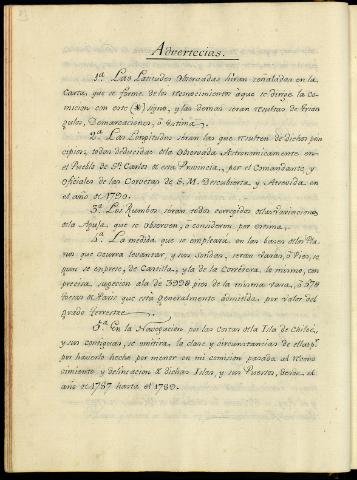 Advertecias.
1ª Las Latitudes Observadas hiran señaladas en la
Carta, que se forme de los reconocimientos aque se dirige la co-
mision con este (*) signo, y las demas seran resultas de trian
gulos, Demarcaciones, ò Estima.
2ª Las Longitudes seran las que resulten de dichos prin
cipios, todas deducidas dela Observada Astronomicamente en
el Pueblo de Sn. Carlos de esta Provincia, por el Comandante, y
Oficiales de las Corvetas de S. M. Descubierta y Atrevida en
el año de 1790.
3ª Los Rumbos seràn todos corregidos delas variaciones
dela Aguja que se observen, ò consideren por estima.
4ª La medida que se empleara en las bases delos Pla
nos que ocurra levantar, y sus sondas, seràn varas, ò Pies, se
gun se esprese, de Castilla, y la de la Corredera lo mismo, con
precisa sugecion ala de 3998 pies de la misma vara, ò 978
toesas de Paris que està generalmente admitida, por valor del
grado terrestre.
5ª En la Navegacion por las Costas dela Isla de Chiloé,
y sus contiguas, se omitira la clase y circunstancias de ellas pr.
por haverla hecho por menor en mi comision pasada al recono
cimiento y delineacion de dichas Islas, y sus Puertos, desde el
año de 1787 hasta el 1789.